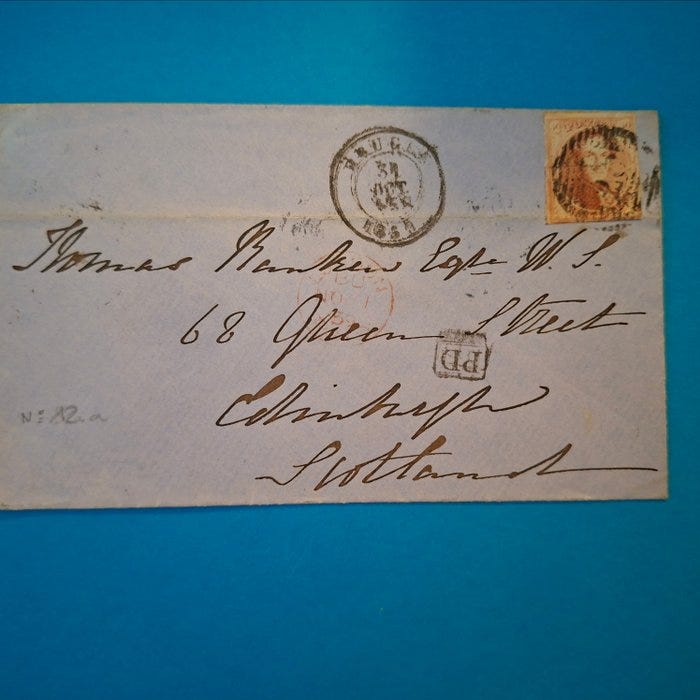 BRUGES
31
OCT
1858
Thomas Ranken Esqre W. S.
68 Queen Street
PD
Edinburgh
Scotland
Nº 12A a